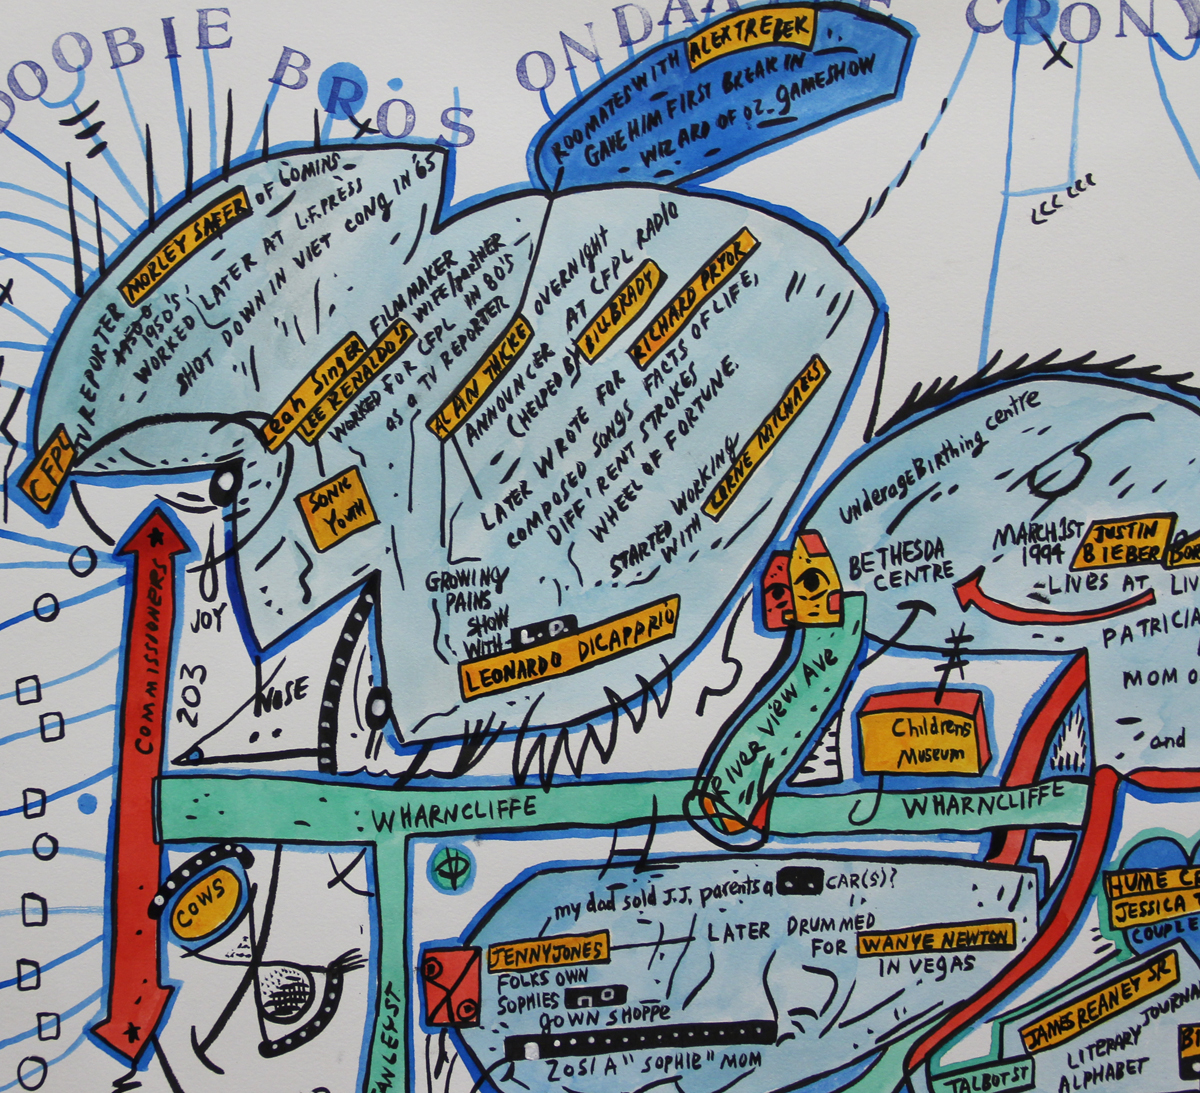 OOBIE BROS
ONDAATJE
CRONY
ROOMATES WITH ALEX TREBEK
GAVE HIM FIRST BREAK IN
WIZARD OF OZ.. GAMESHOW
CFPL
TV REPORTER MORLEY SAFER OF 60MINS
1950'S
WORKED LATER AT L.F.PRESS
SHOT DOWN IN VIET CONG IN '65
Leah Singer FILMMAKER
LEE RENALDO'S WIFE/partner
WORKED FOR CFPL IN 80'S
as a TV REPORTER
SONIC
YOUTH
ALAN THICKE OVERNIGHT
ANNOUNCER AT CFPL RADIO
(HELPED BY BILL BRADY
LATER WROTE FOR RICHARD PRYOR
COMPOSED SONGS FACTS OF LIFE,
DIFF'RENT STROKES
WHEEL OF FORTUNE.
STARTED WORKING
WITH LORNE MICHAELS
GROWING
PAINS
SHOW
WITH L.D.
LEONARDO DICAPPRIO
underage Birthing centre
BETHESDA
CENTRE
MARCH.1ST
1994
JUSTIN
BIEBER
LIVES AT
LIV
PATRICIA
MOM O
and
COMMISSIONERS
JOY
203
NOSE
RIVER VIEW AVE
Childrens
Museum
WHARNCLIFFE
WHARNCLIFFE
COWS
my dad sold J.J. parents a CAR(S)?
JENNY JONES
LATER DRUMMED
FOR WANYE NEWTON
IN VEGAS
FOLKS OWN
SOPHIES
GOWN SHOPPE
205/ A "SOPHIE" MOM
STANLEY ST
HUME C
JESSICA T
COUPLE
JAMES REANEY SR
LITERARY JOURNA
ALPHABET
TALBOT ST